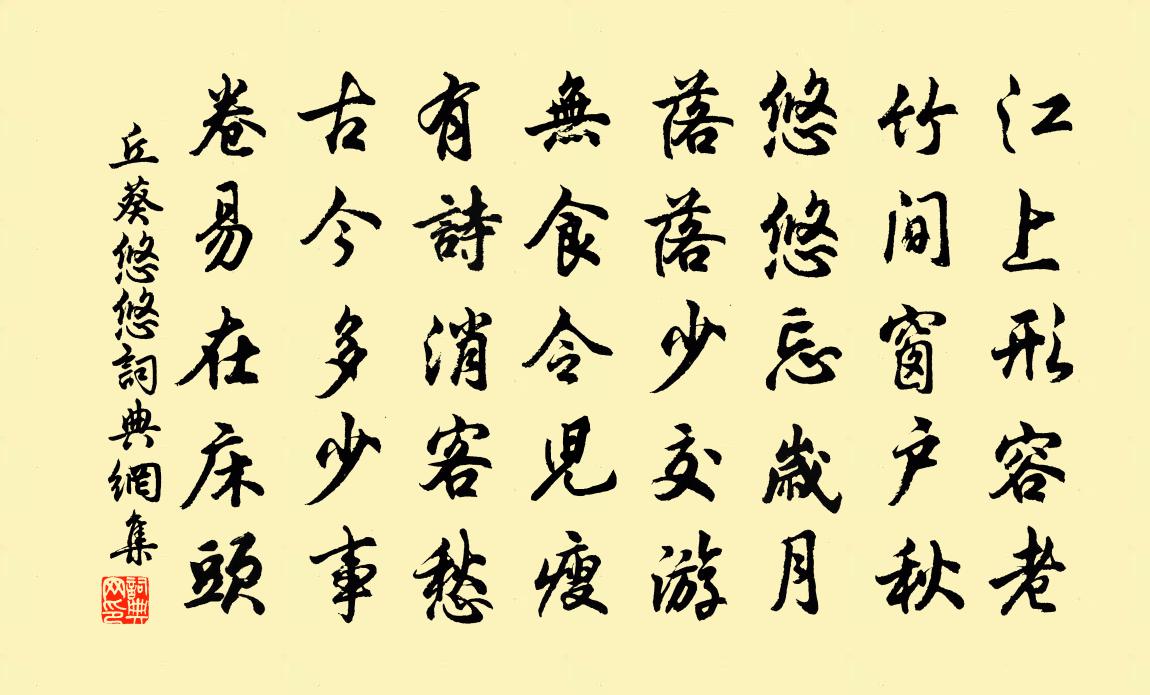 江上形容老
竹间窗户秋
悠悠忘歲月
落落少交游
無食令児瘦
有詩消客愁
古今多少事
卷易在床頭
丘葵悠悠詞典網集
詞典網印